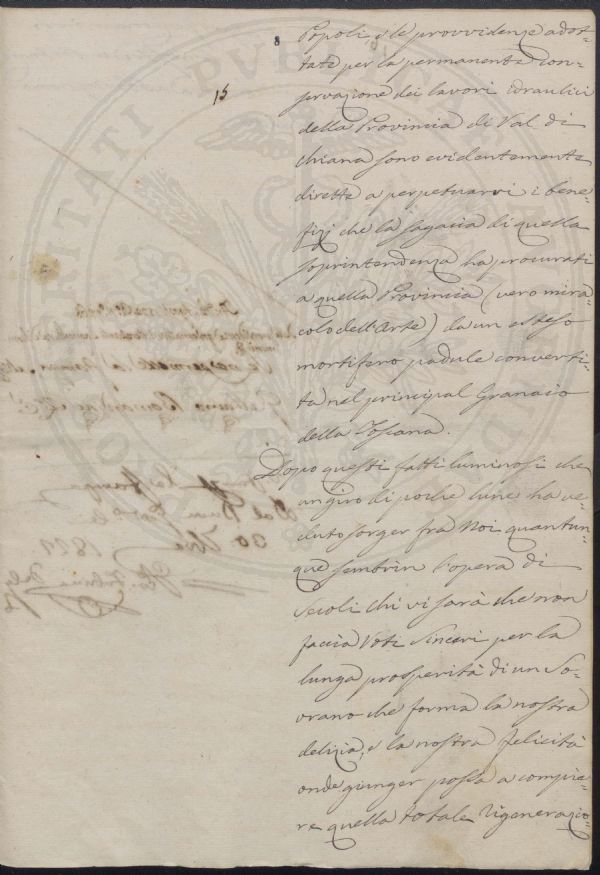 8
15
Popoli e le provvidenze adot=
tate per la permanente con=
servazione dei lavori idraulici
della Provincia di Val di
Chiana sono evidentemente
dirette a perpetuarvi i bene=
fizj che la sagacia di quella
soprintendenza ha procurati
a quella Provincia (vero mira=
colo dell'Arte) da un esteso
mortifero padule converti=
ta nel principal Granaio
della Toscana.
Dopo questi fatti luminosi che
un giro di poche lune ha ve=
duto sorger fra Noi quantun=
que sembrin l'opera di
Secoli chi vi sarà che non
faccia Voti Sinceri per la
lunga prosperità di un So=
vrano che forma la nostra
delizia, e la nostra felicità
onde giunger possa a compia=
re quella totale rigenerazio=